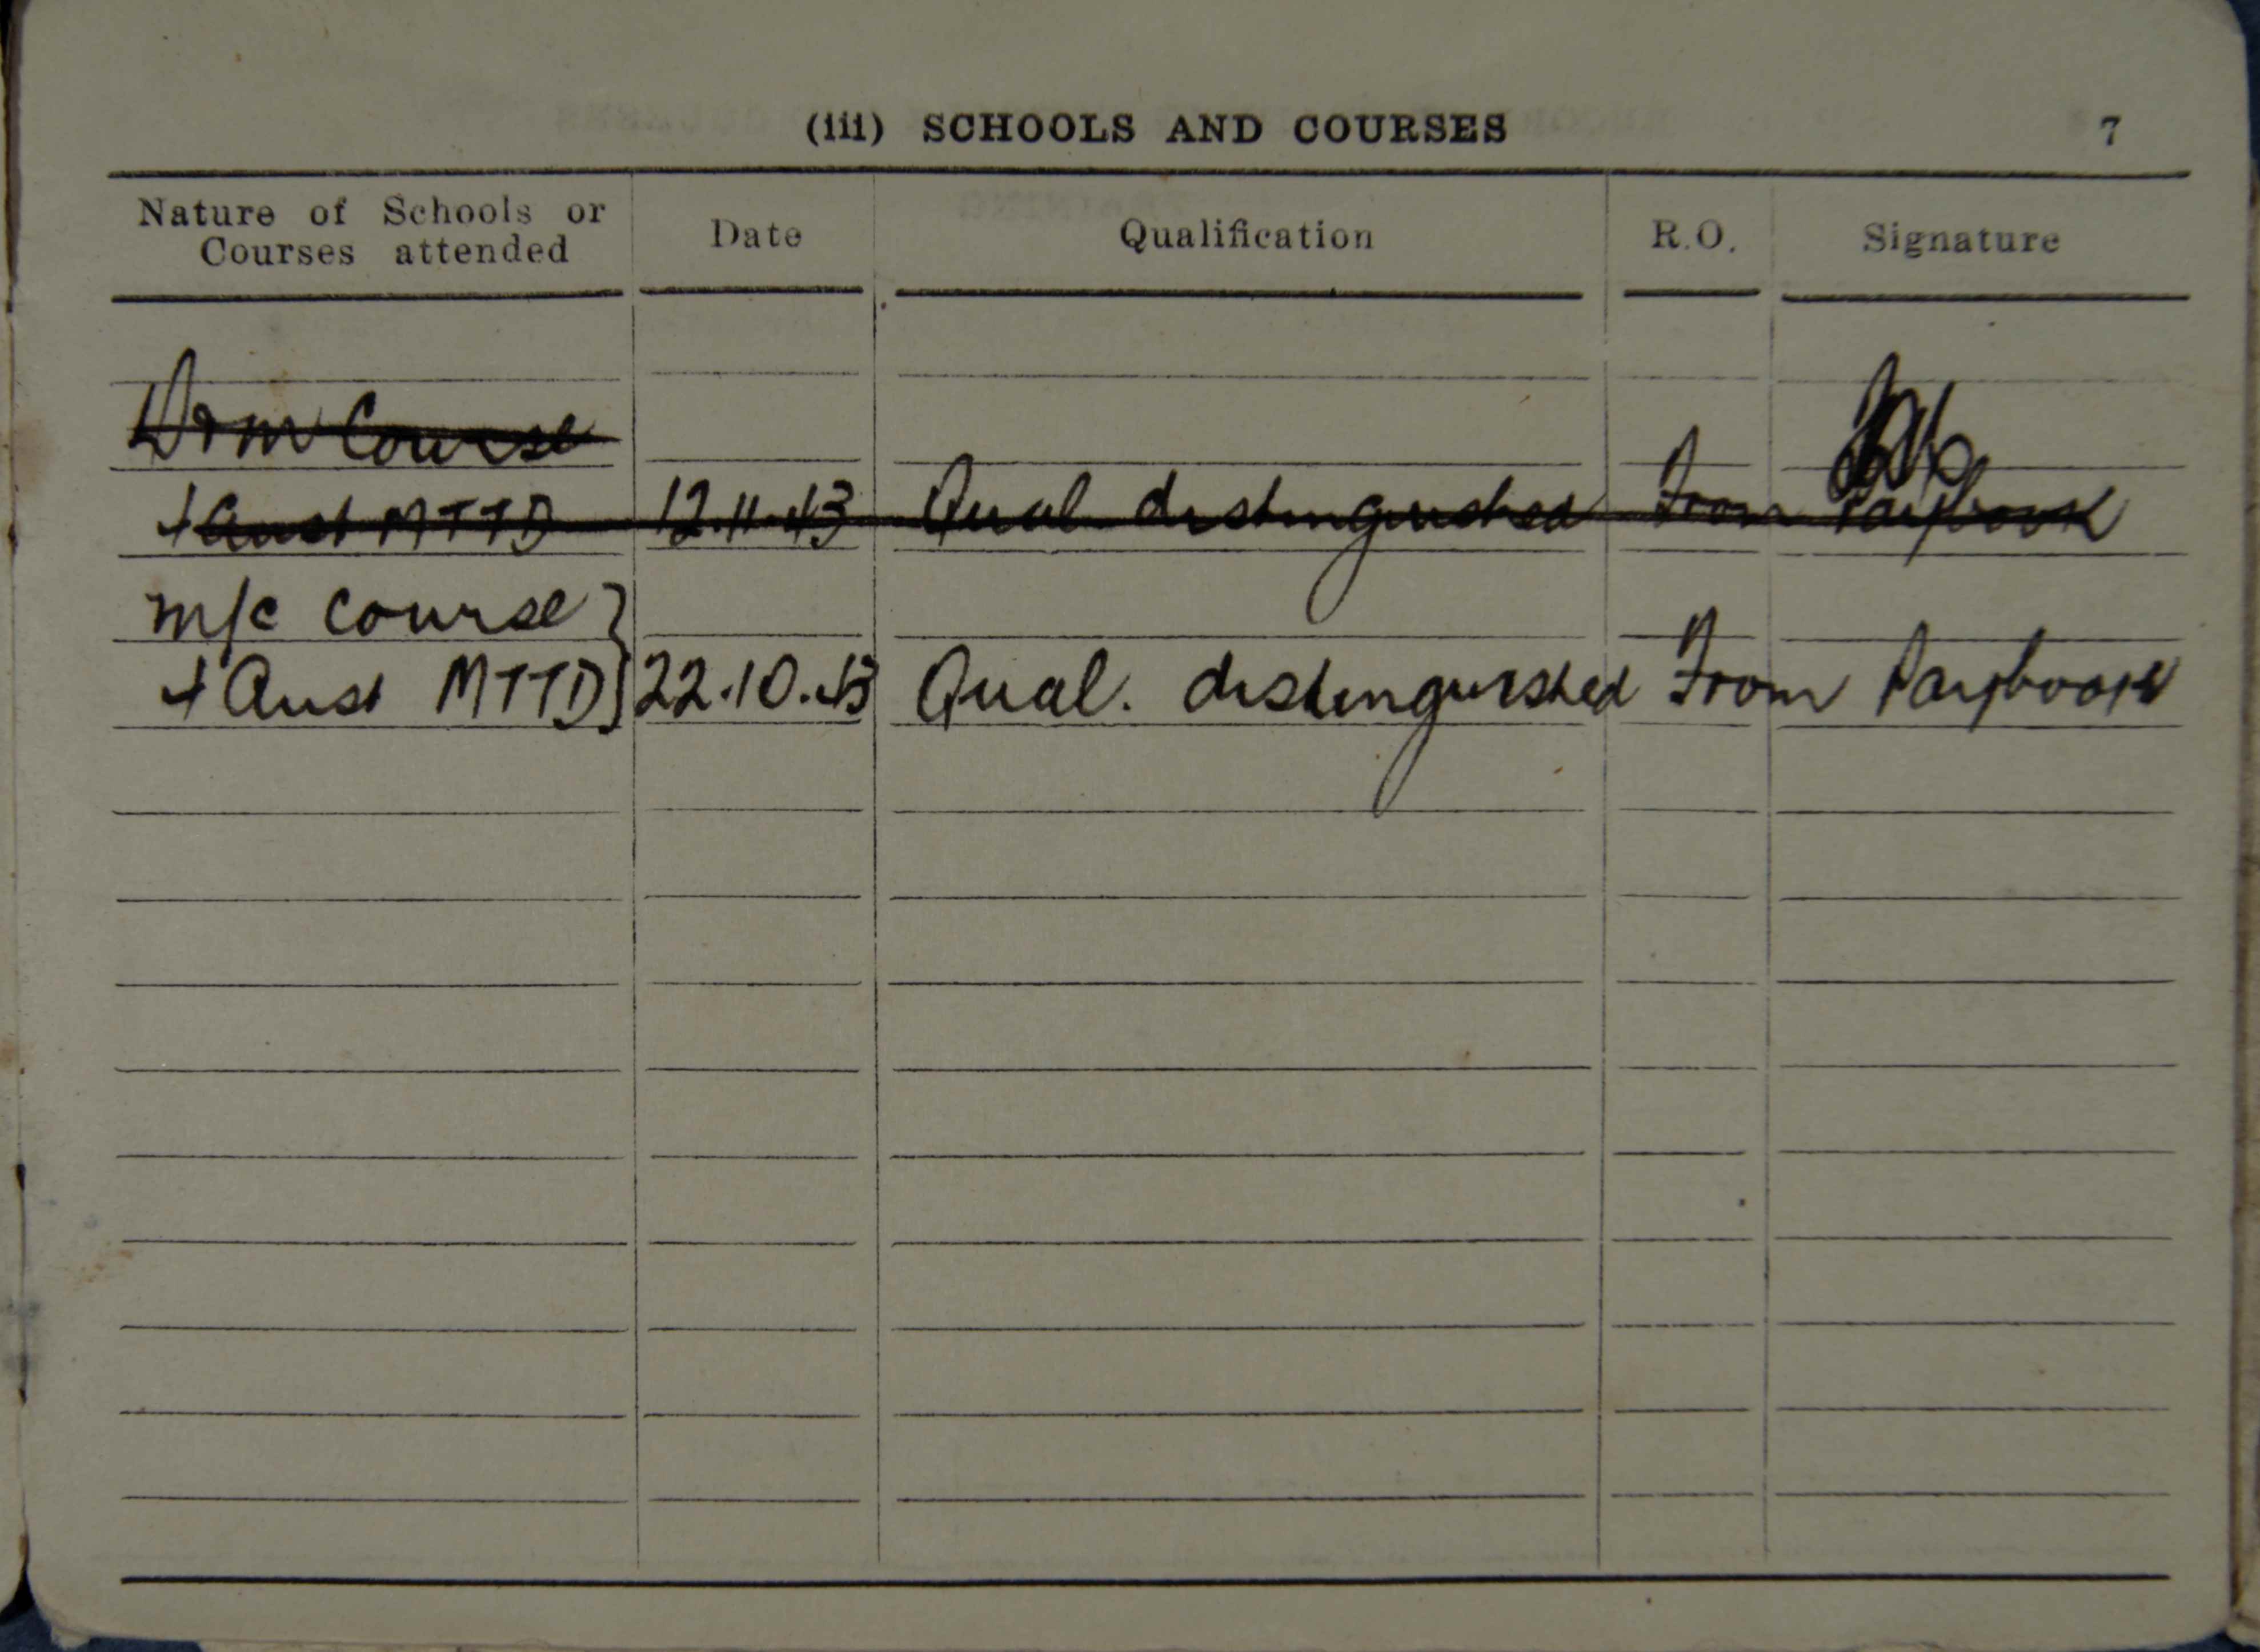 (iii) SCHOOLS AND COURSES 7
Nature of Schools or
Courses attended
Date Qualification R.O. Signature
D&M Course
+ Aust MTTD 12.11.43 Qual. distinguished From Paybook
M/c Course }
+ Aust MTTD } 22.10.43 Qual. distinguished From Paybook